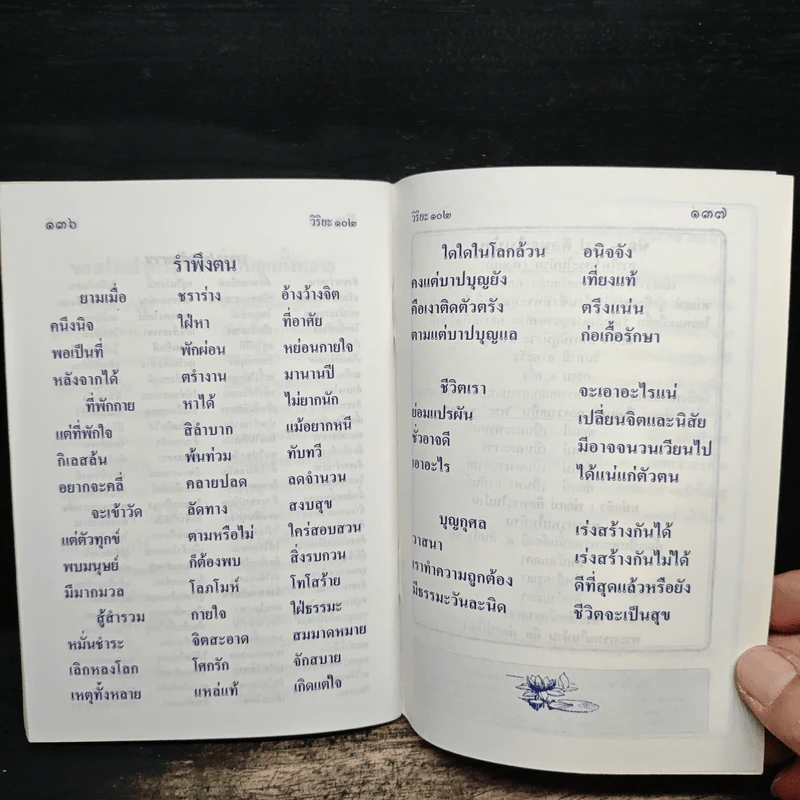 ๑๓๖ วิริยะ ๑๐๒
รำพึงตน
ยามเมื่อ ชราร่าง อ้างว้างจิต
คนึงนิจ ใฝ่หา ที่อาศัย
พอเป็นที่ พักผ่อน หย่อนกายใจ
หลังจากได้ ตรำงาน มานานปี
ที่พักกาย หาได้ ไม่ยากนัก
แต่ที่พักใจ สิลำบาก แม้อยากหนี
กิเลสล้น พ้นท่วม ทับทวี
อยากจะคลี่ คลายปลด ลดจำนวน
จะเข้าวัด ลัดทาง สงบสุข
แต่ตัวทุกข์ ตามหรือไม่ ใคร่สอบสวน
พบมนุษย์ ก็ต้องพบ สิ่งรบกวน
มีมากมวล โลภโมห์ โทโสร้าย
สู้สำรวม กายใจ ใฝ่ธรรมะ
หมั่นชำระ จิตสะอาด สมมาดหมาย
เลิกหลงโลก โศกรัก จักสบาย
เหตุทั้งหลาย แหล่แท้ เกิดแต่ใจ
วิริยะ ๑๐๒ ๑๓๗
ใดใดในโลกล้วน อนิจจัง
คงแต่บาปบุญยัง เที่ยงแท้
คือเงาติดตัวตรัง ตรึงแน่น
ตามแต่บาปบุญแล ก่อเกื้อรักษา
ชีวิตเรา จะเอาอะไรแน่
ย่อมแปรผัน เปลี่ยนจิตและนิสัย
ชั่วอาจดี มีอาจจนวนเวียนไป
เอาอะไร ได้แน่แก่ตัวตน
บุญกุศล เร่งสร้างกันได้
วาสนา เร่งสร้างกันไม่ได้
เราทำความถูกต้อง ดีที่สุดแล้วหรือยัง
มีธรรมะวันละนิด ชีวิตจะเป็นสุข